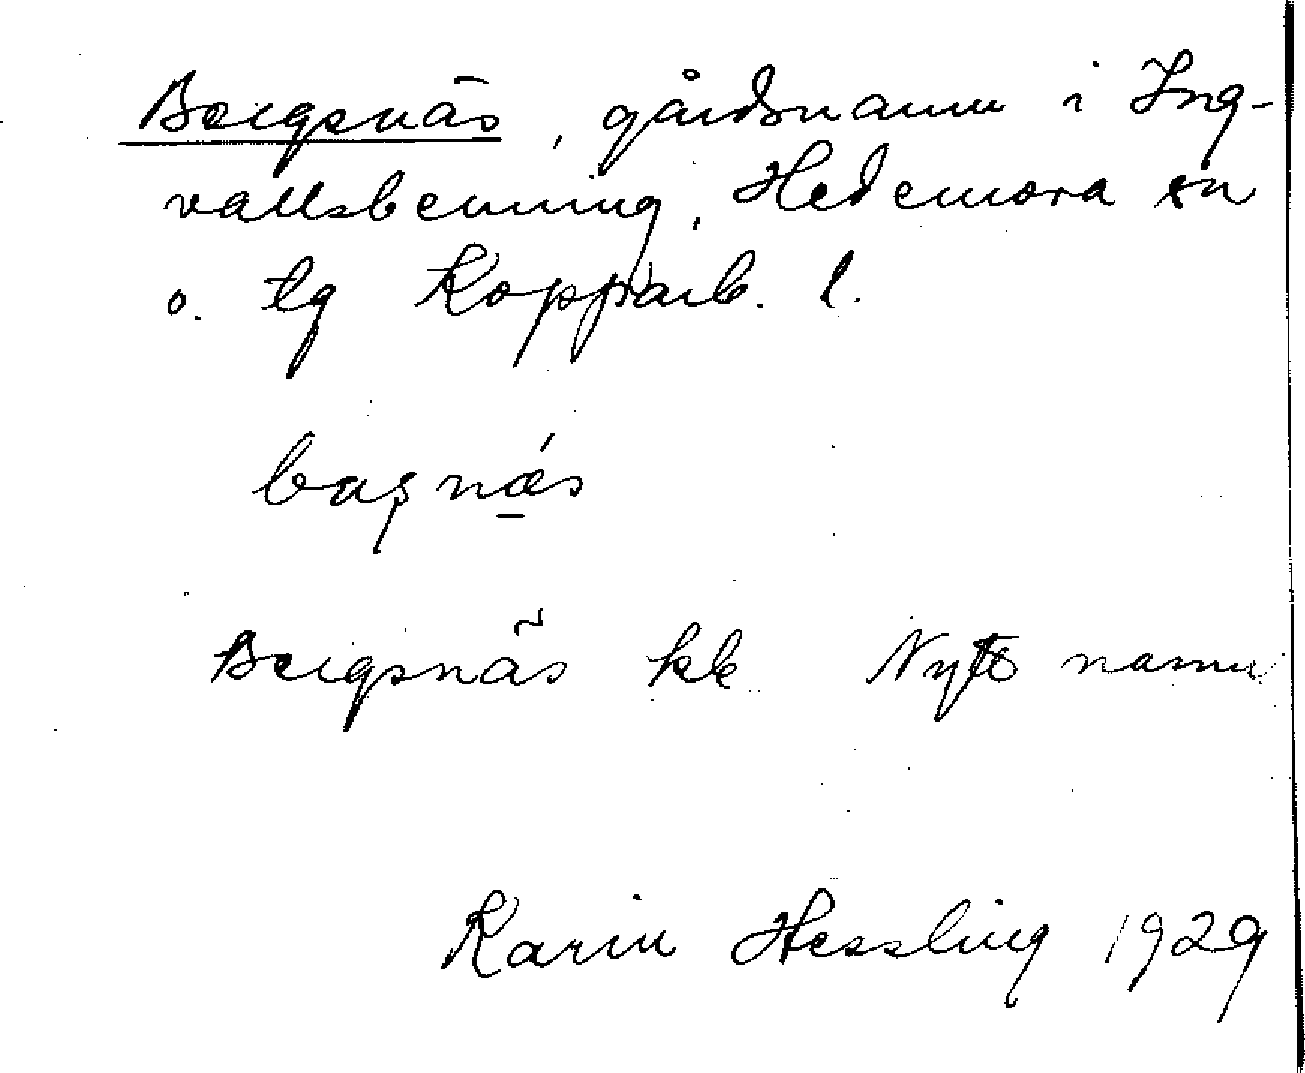 Bergsnäs, gårdsnamn i Ing-
vallsbenning, Hedemora sn
o. tg Kopparb. l.
Bergsnäs kk Nytt namn
Karin Hessling 1929